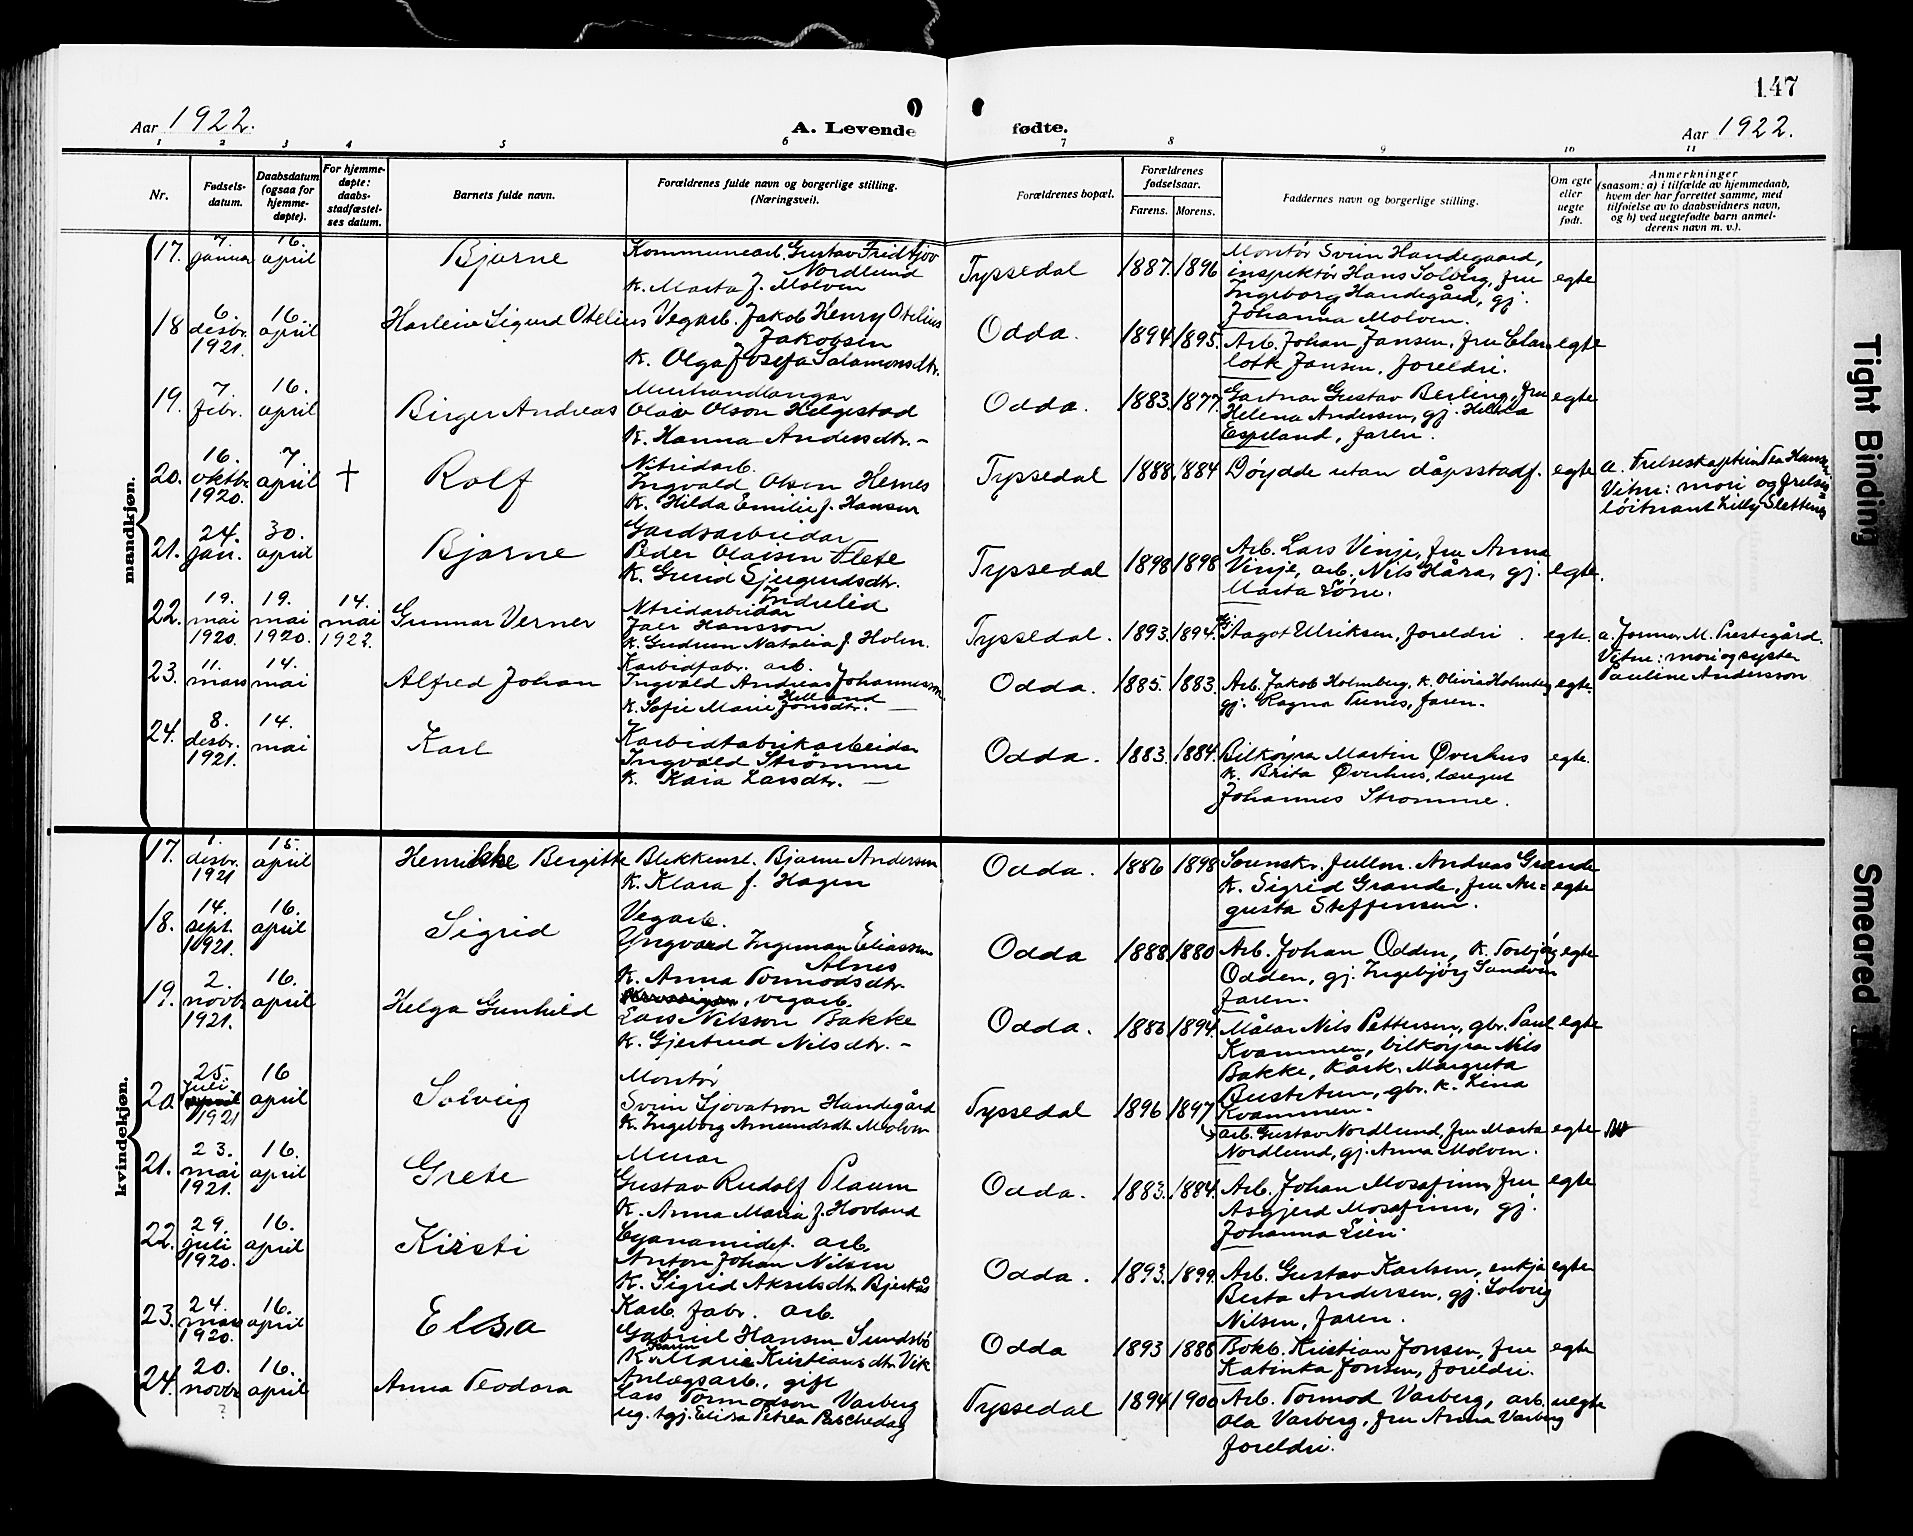 147
Aar 1922. A. Levende fødte. Aar 1922.
1 2 3 4 5 6 7 8 9 10 11
Nr.
Fødsels-datum.
Daabsdatum (ogsaa for hjemme-døpte).
For hjemme-døpte: daabs-stadfæstel-ses datum.
Barnets fulde navn.
Forældrenes fulde navn og borgerlige stilling. (Næringsvei).
Forældrenes bopæl.
Forældrenes fødselsaar.
Farens. Morens.
Faddernes navn og borgerlige stilling.
Om egte eller uegte født.
Anmerkninger
(saasom: a) i tilfælde av hjemmedaab,
hvem der har forrettet samme, med
tilføielse av to daabsvidners navn,
og b) ved uegtefødte barn anmel-
derens navn m. v.).
mandkjøn.
17. 7. januar 16. april Bjarne
Kommunearb. Gustav Fridtjov
Nordlund
k. Marta f. Molven
Tyssedal 1887. 1896
Montør Svein Handegaard,
inspektør Hans Solberg, fru
Ingeborg Handegård, gj.
Johanna Molven.
egte
18 6. desbr. 1921. 16. april Harleiv Sigurd Otelius
Vegarb. Jakob Henry Otelius
Jakobsen
k. Olga Josefa Salamonsdtr.
Odda. 1894 1895.
Arb. Johan Jansen, fru
Jansen, foreldri.
egte
19. 7 febr. 16. april Birger Andreas
Murhandlangar
Olav Olson Helgestad
k. Hanna Andersdtr. -
Odda. 1883. 1877.
Gartnar Gustav Berling, fru
Helena Andersen, gj. Helena
Espeland, faren.
egte
20. 16. oktbr. 1920. 7 april † Rolf
Nitridarb.
Ingvald Olsen Hernes
k. Hilda Emilie f. Hansen
Tyssedal 1888. 1884
Døydde utan dåpsstadf.
egte
a. Frelseskaptein Tea Hansen
Vitne: mori og frelses=
løitnant Lilly Slettenes
21. 24. jan. 30. april Bjarne
Gardsarbeidar
Peder Olaisen Flete
k. Gurid Sjugurdsdtr.
Indrelid
Tyssedal 1898 1898
Arb. Lars Vinje, fru Anna
Vinje, arb. Nils Håra, gj.
Marta
egte.
22. 19. mai 1920. 19. mai 1920. 14. mai 1922. Gunnar Verner
Nitridarbeidar
Jaer Hansson
k. Gudrun Natalia f. Holm.
Tyssedal. 1893. 1894.
Gj. Aagot Ulriksen, foreldri.
egte.
a. Jormor M. Prestegård.
Vitne: mori og syster
Pauline Andersson
23. 11. mars 14. mai Alfred Johan
Karbidfabr. arb.
Ingvald Andreas Johannesson
Helland
k. Sofie Marie Jonsdtr. —
Odda. 1885. 1883.
Arb. Jakob Holmberg, k. Olivia Holmberg
gj. Ragna Tunes, faren.
egte.
24. 8. desbr. 1921. 14. mai Karl
Karbidfabrikarbeidar
Ingvald Strømme
k. Kaia Larsdtr. —
Odda. 1883. 1884.
Bilkøyra Martin Øverhus
k. Brita Øverhus, læregut
Johannes Stromme.
egte.
kvindekjøn.
17. 1. desbr. 1921 15. april Henrikke Bergitte
Blekkensl. Bjarne Andersen
k. Klara f. Hagen
Odda. 1886 1898
Sorenskr. fullm. Andreas Grande
k. Sigrid Grande, fru Au=
gusta Steffensen.
egte
18. 14. sept. 1921. 16. april Sigrid
Vegarb.
Yngvard Ingeman Eliassen
Alnes
k. Anna Tormodsdtr.
Odda 1888 1880
Arb. Johan Odden, k. Torbjørg
Odden, gj. Ingebjørg Sandven
faren.
egte
19. 2. novbr. 1921. 16. april Helga Gunhild
, vegarb.
Lars Nilsson Bakke
k. Gjertrud Nilsdtr. -
Odda. 1886 1894.
Målar Nils Pettersen, gbr. Paul
Kvammen, bilkøyra Nils
Bakke, Kårk. Margreta
Bustetun, gbr. k. Lina
Kvammen.
egte
20 25. juli 1921 16 april Solveig
Montør
Svein Sjovatson Handegård
k. Ingeborg Amundsdtr. Molven
Tyssedal 1896 1897
arb. Gustav Nordlund, fru Marta
Nordlund, gj. Anna Molven.
egte
21. 23. mai 1921. 16. april Grete
Murar
Gustav Rudolf Plaum
k. Anna Maria f. Hovland
Odda. 1883. 1884.
Arb. Johan Mosafinn, fru
Asgjerd Mosafinn, gj.
Johanna
egte
22. 29. juli 1920. 16. april Kirsti
Cyanamidf. arb.
Anton Johan Nilsen
k. Sigrid Akselsdtr. Bjerkås
Odda. 1893. 1899.
Arb. Gustav Karlsen, enkja
Berta Andersen, gj. Solveig
Nilsen, faren.
egte
23. 24. mars 1920. 16. april Elsa
Karb. fabr. arb.
Gabriel Hansen Sundsbø
k. Karen Marie Kristiansdtr. Vik
Odda 1893 1888
Bokb. Kristian Jonsen, fru
Katinka Jonsen, foreldri.
egte
24. 20. novbr. ? 16. april Anna Teodora
Anlegsarb., gift
Lars Tormodson Varberg
ug. tgj. Elisa Petrea
Tyssedal 1894 1900
Arb. Tormod Varberg, arb.
Ola Varberg, fru Anna Varberg
foreldri.
uegte
Tight Binding
Smeared